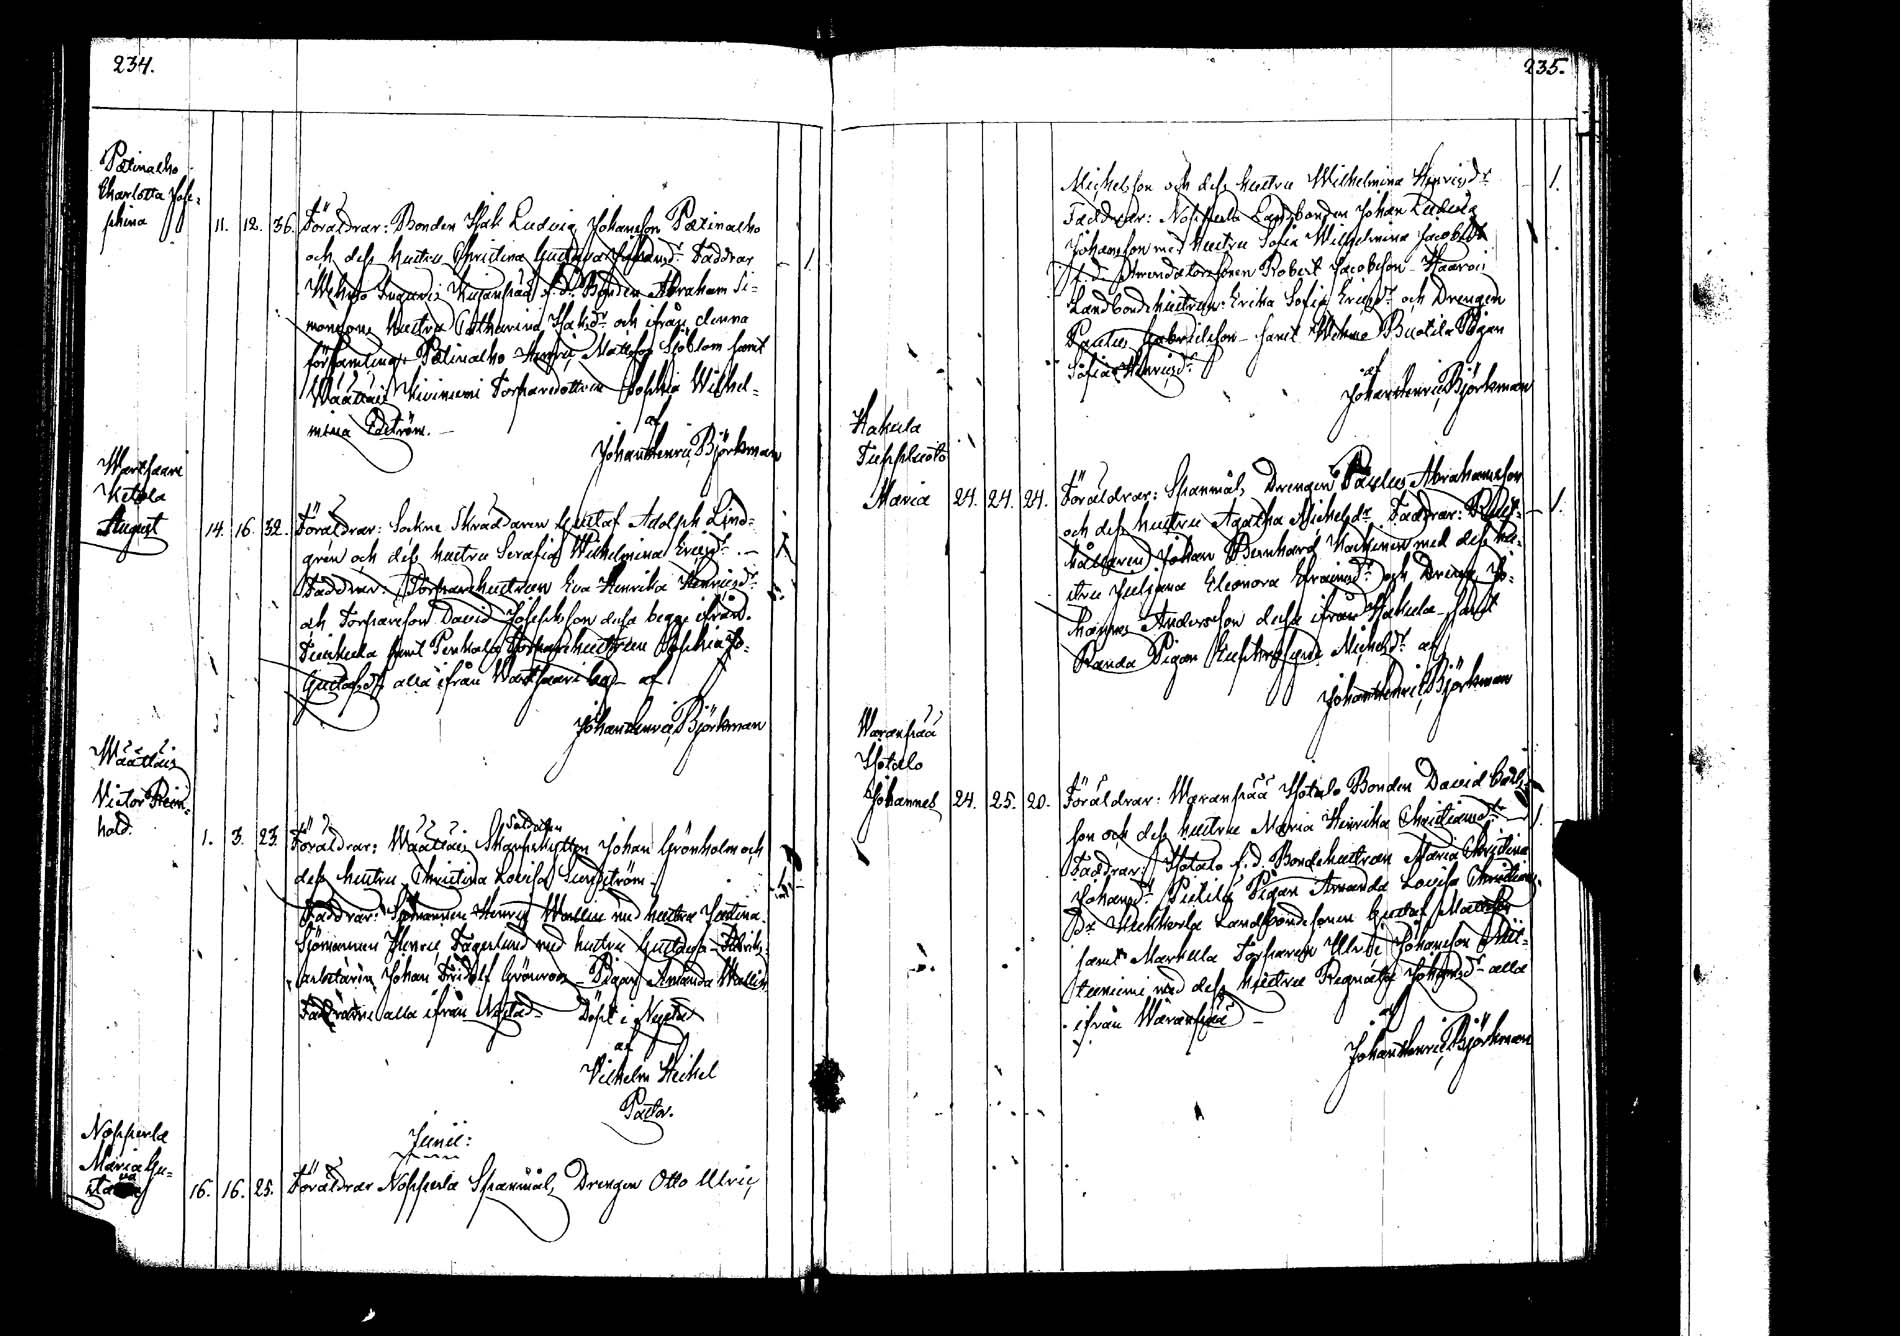 234.
Pätinalho
Charlotta Jose=
phina
11. 12. 36. Föräldrar: Bonden Isak Ludvig Johansson Pätinalho
och dess hustru Christina Gustava Faddrar
Wehmo Bonden Abraham Si=
monsons hustru Catharina Isaksdr och ifrån denna
församling: Pätinalho Henric Mattsson Sjöblom samt
Wäätäis Kiviniemi Torparedottren Sophia Wilhel=
mina Edström.
af
Johan Henric Björkman
Wartsaari
Ketola
August
14. 16. 32. Föräldrar: Sockne Skräddaren Gustaf Adolph Lind=
grén och dess hustru Serafia Wilhelmina Ericsdr.
Faddrar: Torparehustrun Eva Henrika Henricsdr
och Torpareson David Josephsson dessa begge ifrån
samt Penhola Torparehustrun Sophia
Gustafsdr alla ifrån Wartsaari by af
Johan Henric Björkman
Wäätäis
Victor Rein=
hold.
1. 3. 23. Föräldrar: Wäätäis Soldaten Skarpskytten Johan Grönholm och
dess hustru Christina Lovisa Lundström.
Faddrar: Sjömannen Henric Wallin med hustru Justina.
Sjömannen Henric Fagerlund med hustru Gustava Fabriks
arbetaren Johan Fridolf Grönroos Pigan Amanda Wallin
Faddrarne alla ifrån Nystad. Döpt i Nystad
af
Vilhelm Heikel
Pastor.
Junii:
Nopperla
Maria Gu=
stava
16. 16. 25. Föräldrar Nopperla Spanmåls Drengen Otto Ulric
235.
Michelsson och dess hustru Wilhelmina Henricsdr 1.
Faddrar: Nopperla Landbonden Johan Ludvig
Johansson med hustru Sofia Wilhelmina Jacobsdr
f.d. Arrendatorssonen Robert Jacobsson Haaroi
Landbondehustrun Erika Sofia Ericsdr och Drengen
Paulus Gabrielsson samt Wehmo Pigan
Sofia Henricsdr
af
Johan Henric Björkman
Hakula
Maria 24. 24. 24. Föräldrar: Spanmåls Drengen Paulus Abrahamsson 1.
och dess hustru Agatha Michelsdr Faddrar: Rust=
hållaren Johan Bernhard med dess hu=
stru Juliana Eleonora Efraimsdr och Dreng Jo=
hannes Andersson dessa ifrån Hakula samt
Randa Pigan Michelsdr af
Johan Henric Björkman
Waranpää
Isotalo
Johannes 24. 25. 20. Föräldrar: Waranpää Isotalo Bonden David Carls=
son och dess hustru Maria Henrika Christiansdr 1.
Faddrar: Isotalo f.d. Bondehustrun Maria Christina
Johansdr Pietilä Pigan Amanda Lovisa Christians=
dr Landbondesonen Gustaf Mattsson
samt Markula Torparen Ulric Johansson
med dess hustru Regnata Johansdr alla
ifrån Waranpää
af
Johan Henric Björkman